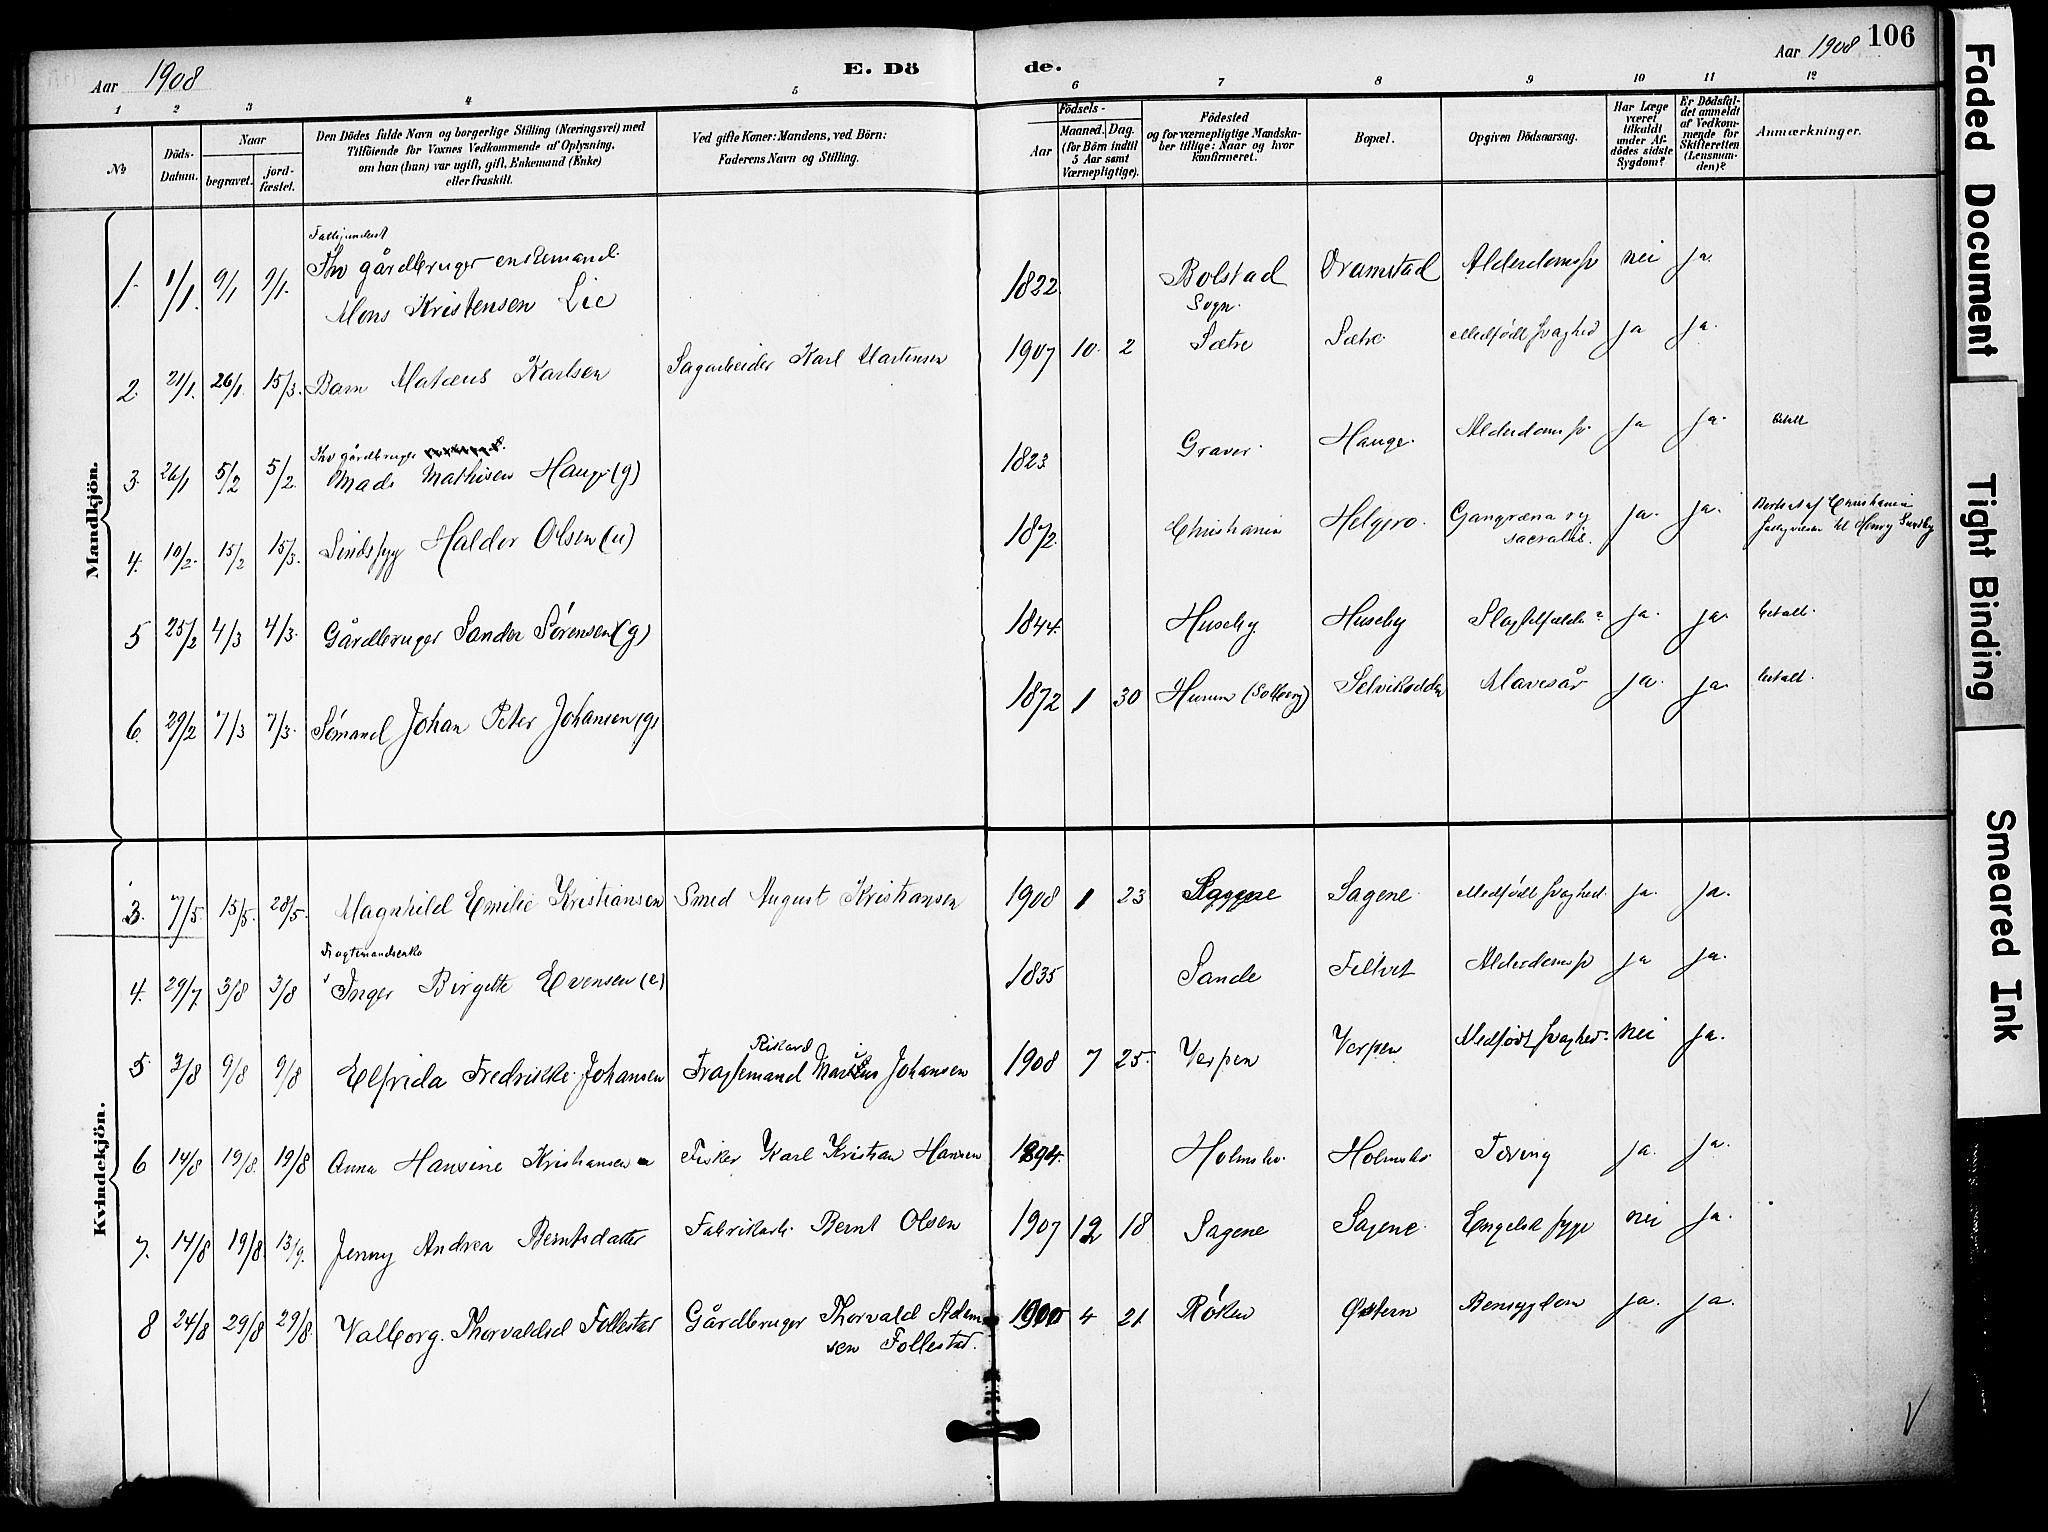 Aar 1908
E. Dö
de.
Aar 1908
106
1 2 3 4 5 6 7 8 9 10 11 12
No
Döds-Datum.
Naar
begravet.
jord-fæstet.
Den Dödes fulde Navn og borgerlige Stilling (Næringsvei) med
Tilföiende for Voxnes Vedkommende af Oplysning,
om han (hun) var ugift, gift, Enkemand (Enke)
eller fraskilt.
Ved gifte Koner: Mandens, ved Börn:
Faderens Navn og Stilling.
Födsels-
Aar
Maaned. Dag.
(for Börn indtil
5 Aar samt
Værnepligtige).
Födested
og for værnepligtige Mandska-
ber tillige: Naar og hvor
konfirmeret.
Bopæl.
Opgiven Dödsaarsag.
Har Læge
været
tilkaldt
under Af-
dödes sidste
Sygdom?
Er Dödsfal-
det anmeldt
af Vedkom-
mende for
Skifteretten
(Lensman-
den)?
Anmærkninger.
Mandkjön.
1. 1/1. 9/1 9/1. gårdbruger enkemand Mons Kristensen Lie 1822. Bolstad Sogn. Dramstad Alderdomssv nei ja.
2. 21/1. 26/1 15/3. Barn Karlsen Sagarbeider Karl Martensen 1907 10. 2 Sætre Sætre Medfødt svaghed ja ja.
3. 26/1 5/2 5/2. gårdbruger Mads Mathisen Hauge (g) 1823 Graver Hauge. Alderdomssv. ja ja. betalt
4. 10/2. 15/2 15/3. Sindssyg Halder Olsen (u) 1872. Christiania Helgero. Gangræna sacralis. ja. ja. af Christiania til Henry
5 25/2 4/3 4/3. Gårdbruger Sander Sørensen (g) 1844. Huseby. Huseby ja. ja. betalt.
6. 29/2 7/3 7/3. Sømand Johan Peter Johansen (g) 1872 1 30 Hurum (Solberg) Selvikodden Mavesår ja. ja. betalt.
Kvindekjön.
3. 7/5 15/5. 28/5. Magnhild Emilie Kristiansen Smed August Kristiansen 1908 1 23 Sagene Sagene Medfødt svaghed. ja. ja.
4. 29/7 3/8 3/8 Fragtemandsenke Inger Birgitte Evensen (e) 1835 Sande Filtvet Alderdomssv ja ja.
5 3/8 9/8 9/8 Elfrida Fredrikke Johansen Fragtemand Rikard Marius Johansen 1908 7 25. Verpen Verpen Medfødt svaghed. nei ja.
6 14/8 19/8. 19/8 Anna Hansine Kristiansen Fisker Karl Kristian Hansen 1894. Holmsbo. Holmsbo Tæring ja. ja.
7. 14/8 19/8 13/9. Jenny Andrea Berntsdatter Fabrikarb. Bernt Olsen 1907 12 18 Sagene Sagene. Engelsk syge nei ja.
8 24/8 29/8 29/8. Valborg Thorvaldsd Follestad Gårdbruger Thorvald Adem-
sen Follestad. 1900 4 21 Røken Østern Bensygdom ja. ja.
Faded Document
Tight Binding
Smeared Ink